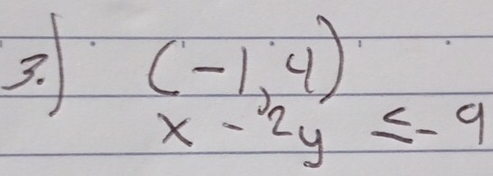 3.) (-1, 4)
x - 2y ≤ -9